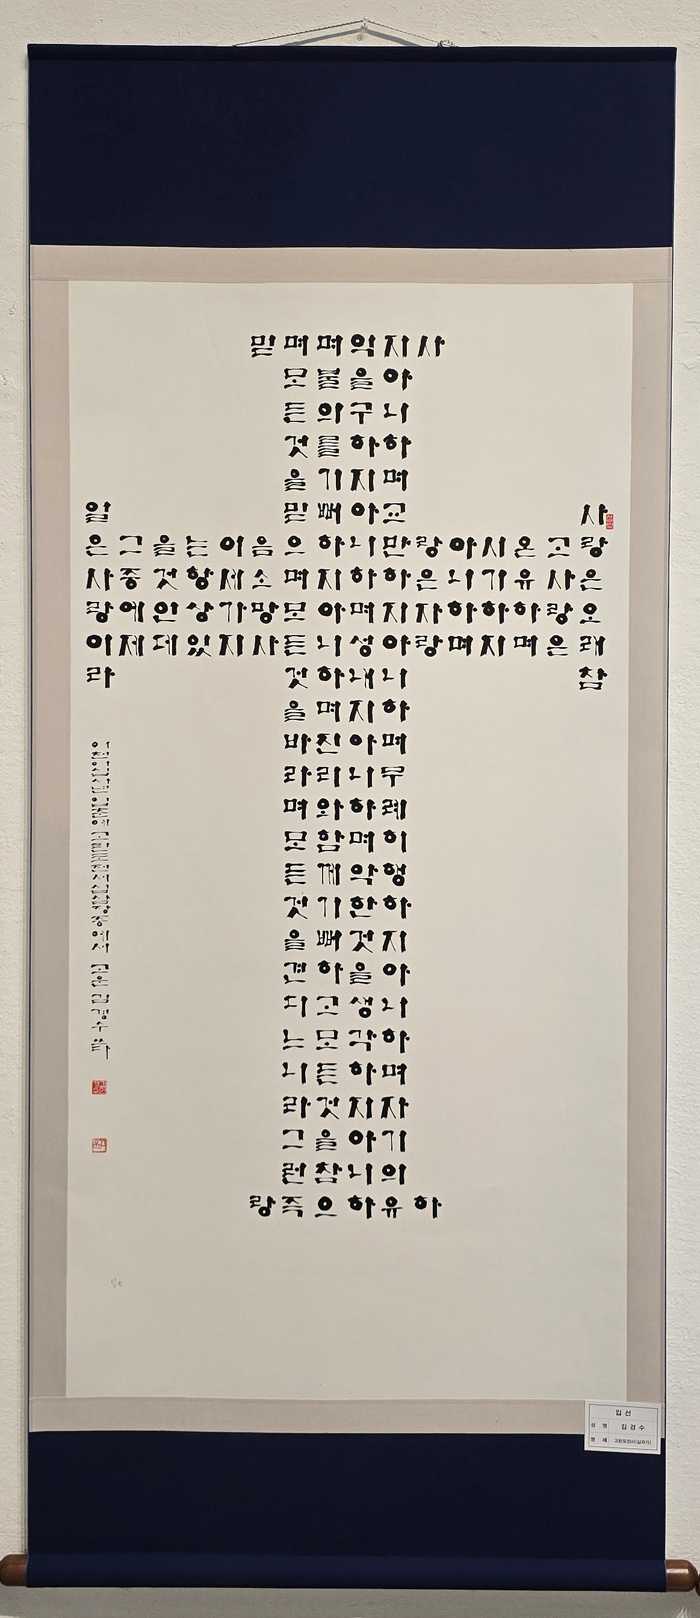 사랑은오래참
고사랑은
온유하며
시기하지
아니하며
사랑은자랑하
지아니하며고만하지아니하며무례히행하지아니하며자기의유
익을구하지아니하며성내지아니하며악한것을생각하지아니하
며불의를기뻐하지아니하며진리와함께기뻐하고모든것을참으
며모든것을믿으며모든것을바라며모든것을견디느니라그런즉
믿음소망사랑
이세가지
는항상있
을것인데
그중에제
일은사랑이라
고린도전서십삼장중에서 고운 김경수 쓰다
입선
성명 김경수
명제 고린도전서(십자가)